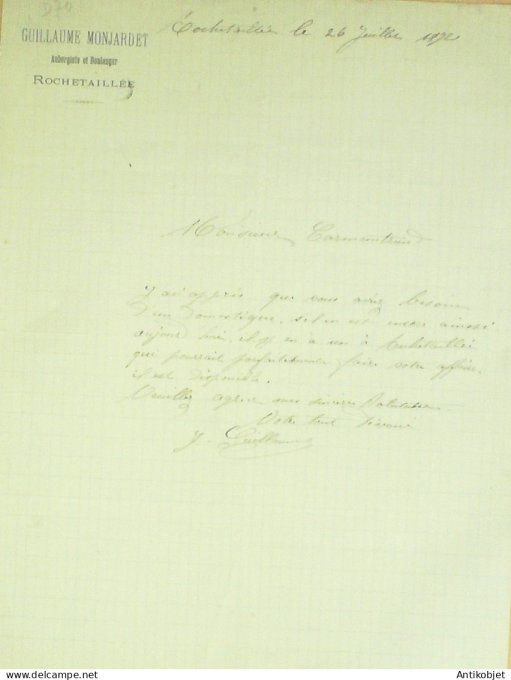 D70
GUILLAUME MONJARDET
Aubergiste et Boulanger
ROCHETAILLÉE
Rochetaillée le 26 Juillet 189
Monsieur
J'ai appris que vous aviez besoin
d'un domestique, si l'on est encore ainsi
aujourd'hui, il y en a un à Rochetaillée
qui pourrait parfaitement faire votre affaire.
il est disponible.
Veuillez agréer mes sincères Salutations
Votre tout dévoué
J. Guillaume
Antikobjet